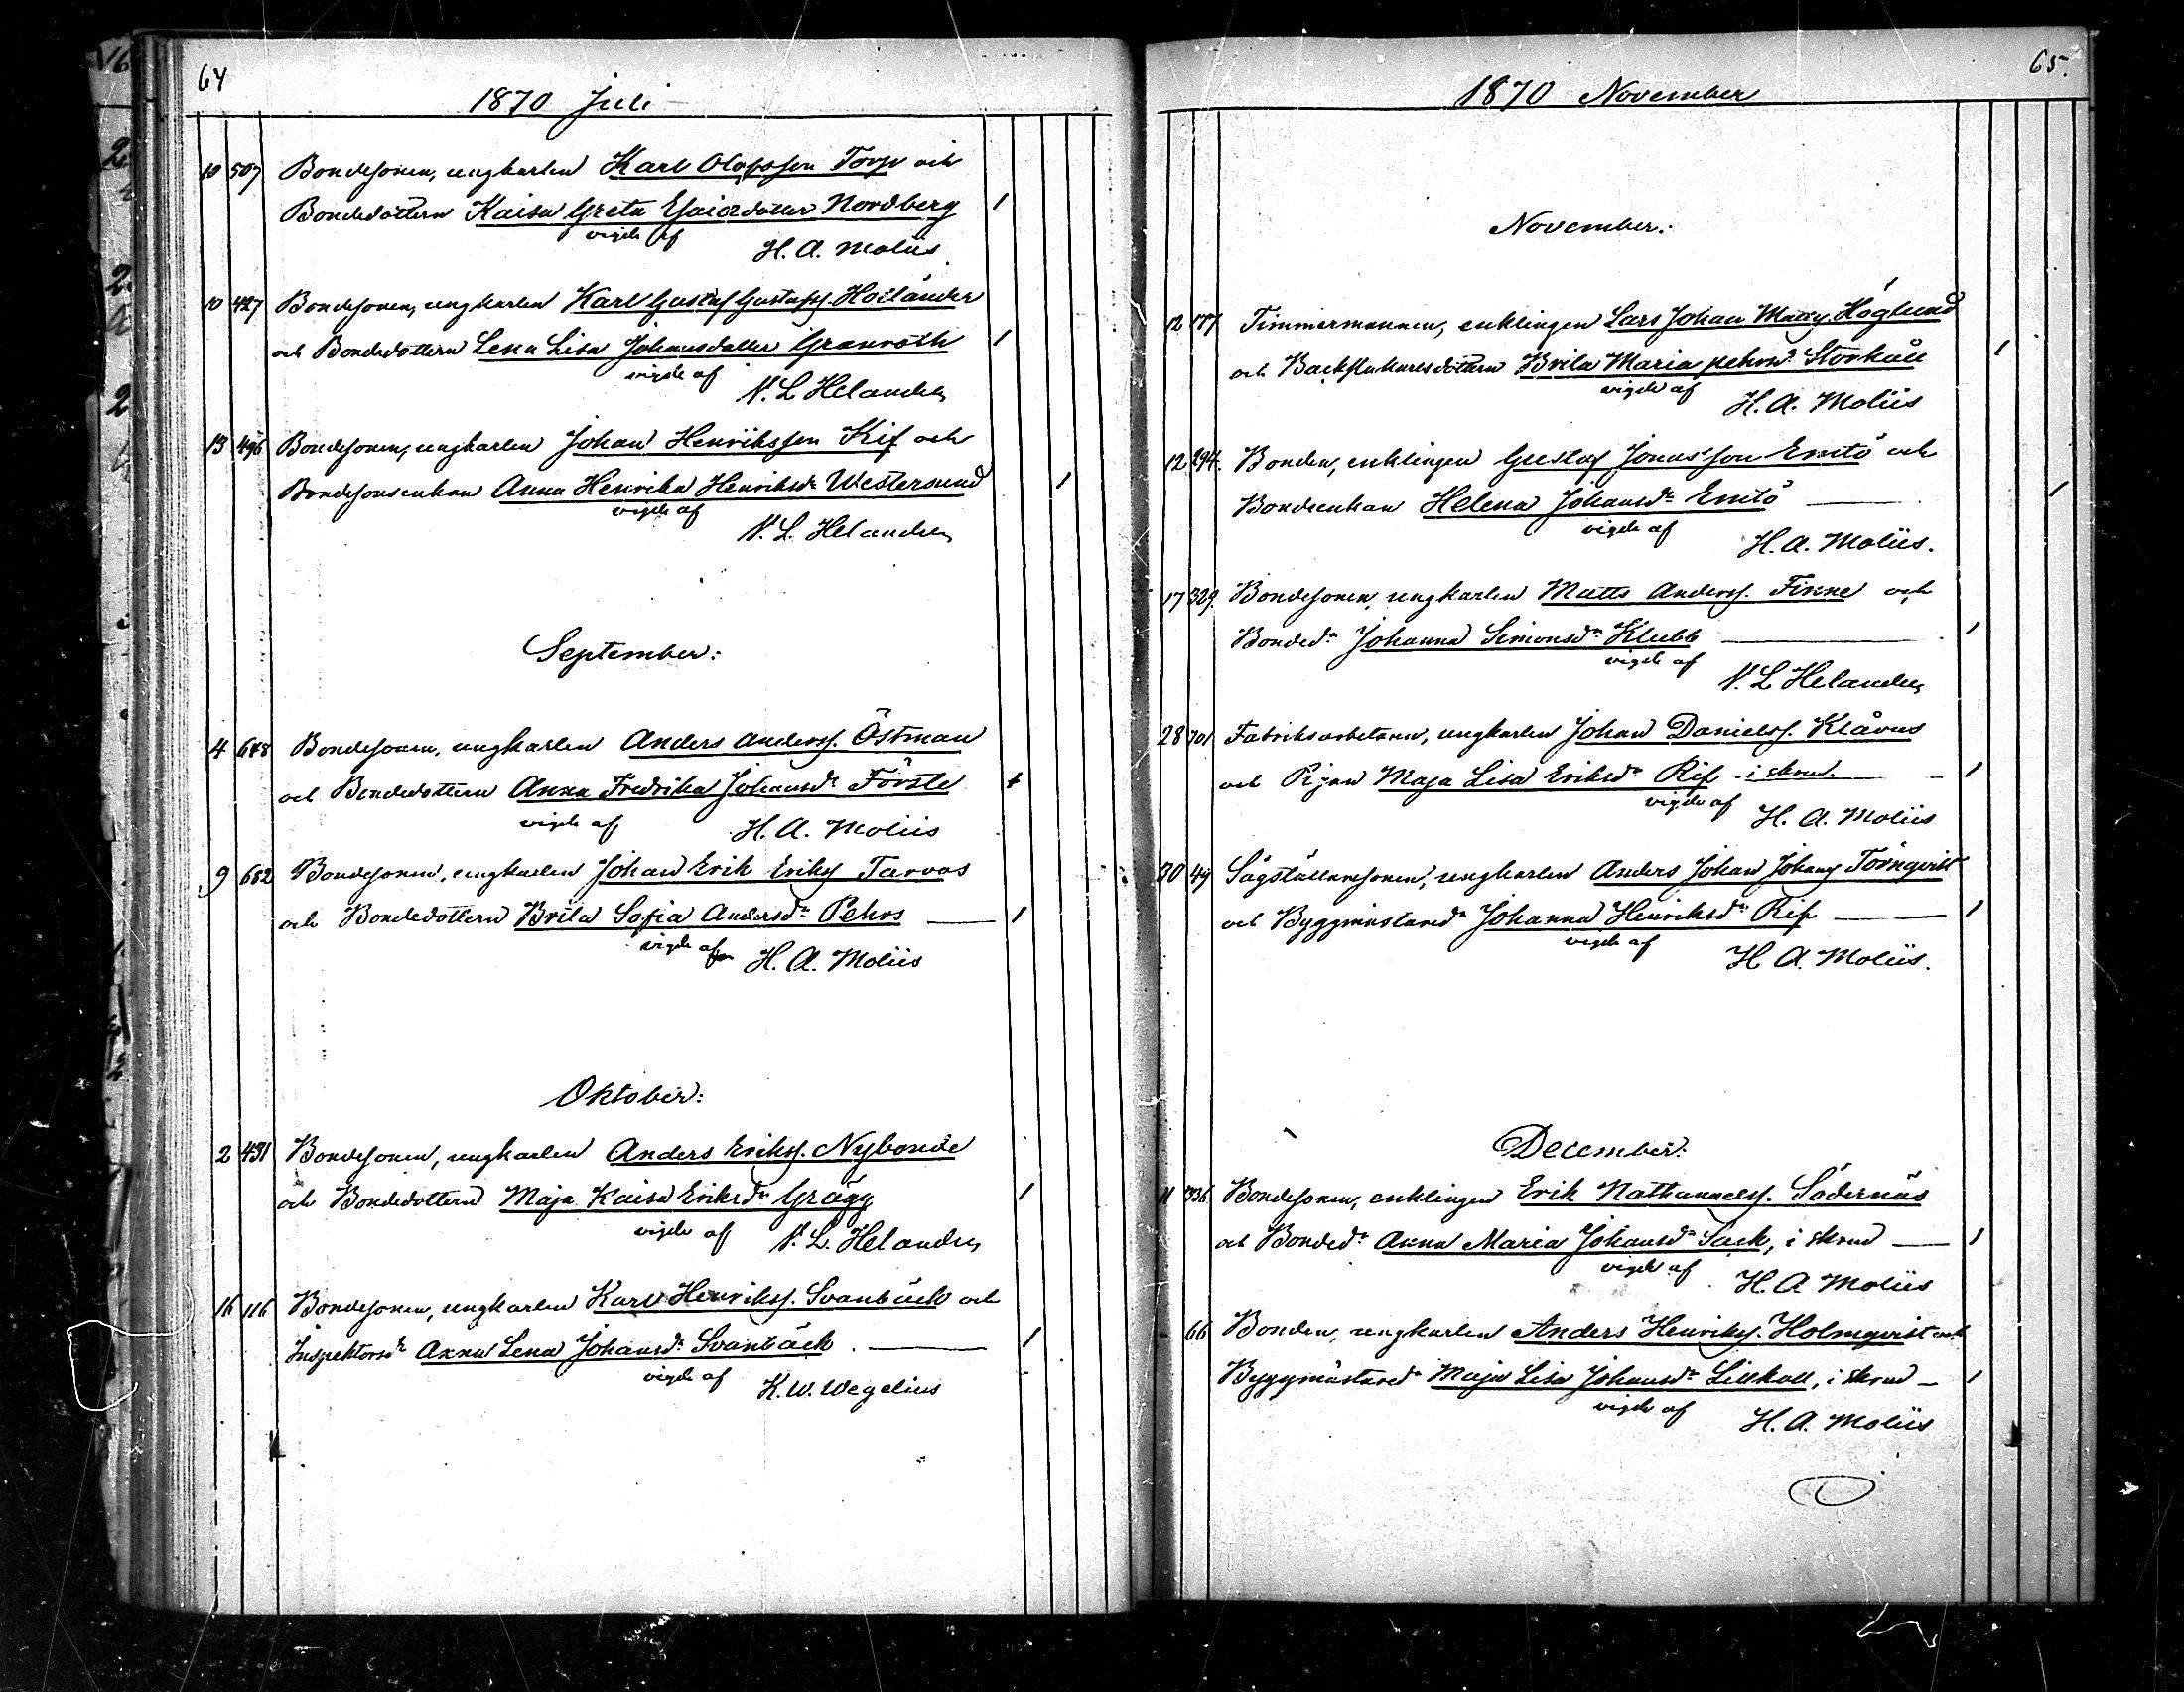 64
1870 Juli
10 507 Bondesonen, ungkarlen Karl Olofsson Torp och
Bondedottern Kaisa Greta Esaiædotter Nordberg 1
vigde af
H. A. Moliis
10 427 Bondesonen, ungkarlen Karl Gustaf Gustafss. Hoiländer
och Bondedottern Lena Lisa Johansdotter Granroth 1
vigde af
N. L. Helander
13 496 Bondesonen, ungkarlen Johan Henriksson Kif och
Bondesonsenkan Anna Henrika Henriksdr Westersund 1
vigde af
N. L. Helander
September:
4 648 Bondesonen, ungkarlen Anders Anderss. Östman
och Bondedottern Anna Fredrika Johansdr Förste 1
vigde af
H. A. Moliis
9 682 Bondesonen, ungkarlen Johan Erik Eriks. Tarvos
och Bondedottern Brita Sofia Andersdr Pehrs 1
vigde af
H. A. Moliis
Oktober:
2 431 Bondesonen, ungkarlen Anders Erikss. Nybonde
och Bondedottern Maja Kaisa Eriksdr Grägg 1
vigde af
N. L. Helander
16 116 Bondesonen, ungkarlen Karl Henrikss. Svanbäck och
Inspektorsdr Anna Lena Johansdr Svanbäck 1
vigde af
K. W. Wegelius
65.
1870 November
November:
12 177 Timmermannen, enklingen Lars Johan Matts. Höglund
och Backstukaresdottern Brita Maria Pehrsdr Storkåll 1
vigde af
H. A. Moliis
12 294. Bonden, enklingen Gustaf Jonasson Emtö och
Bondeenkan Helena Johansdr Emtö 1
vigde af
H. A. Moliis.
17 329. Bondesonen, ungkarlen Matts Anderss. Finne och
Bondedr Johanna Simonsdr Klubb 1
vigde af
N. L. Helander
28 701 Fabriksarbetaren, ungkarlen Johan Danielss. Klåvus
och Pigan Maja Lisa Eriksdr Rif i skrud. 1
vigde af
H. A. Moliis
30 49 Sågställaresonen, ungkarlen Anders Johan Johans. Törnqvist
och Byggmästaredr Johanna Henriksdr Rif 1
vigde af
H. A. Moliis.
December:
11 336 Bondesonen, enklingen Erik Nathanaelss. Södernäs
och Bondedr Anna Maria Johansdr Sack, i skrud 1
vigde af
H. A. Moliis
66 Bonden, ungkarlen Anders Henrikss. Holmqvist och
Byggmästaredr Maja Lisa Johansdr Lillkall, i skrud 1
vigde af
H. A. Moliis